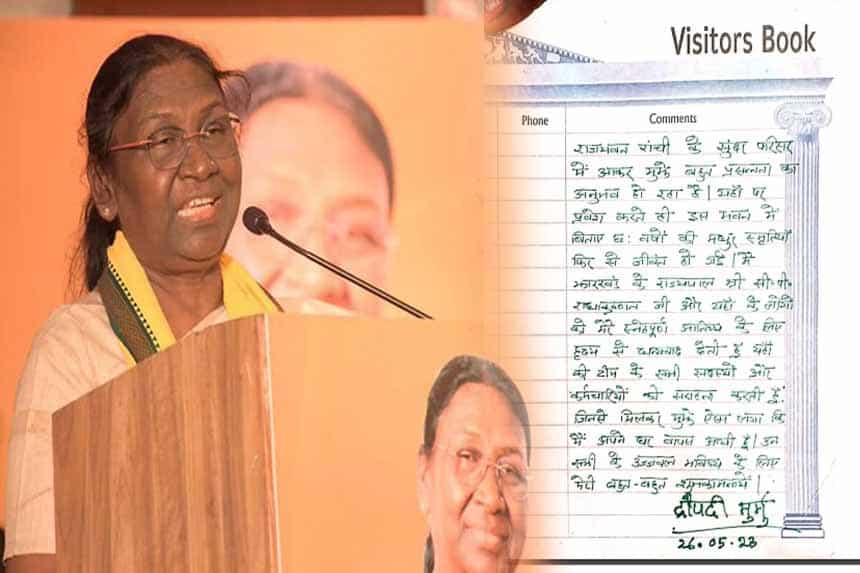 Visitors Book
Phone
Comments
राजभवन रांची के सुंदर परिसर
में आकर मुझे बहुत प्रसन्नता का
अनुभव हो रहा है। यहाँ पर
प्रवेश करते ही इस भवन में
बिताए छ: वर्षों की मधुर स्मृतियाँ
फिर से जीवंत हो गई। मैं
झारखंड के राज्यपाल श्री सी.पी.
राधाकृष्णन जी और यहाँ के लोगों
को मेरे स्नेहपूर्ण आतिथ्य के लिए
हृदय से धन्यवाद देती हूँ यहाँ
की टीम के सभी सदस्यों और
कर्मचारियों को सराहना करती हूँ
जिनसे मिलकर मुझे ऐसा लगा कि
मैं अपने घर वापस आयी हूं। उन
सभी के उज्जवल भविष्य के लिए
मेरी बहुत-बहुत शुभकामनायें।
द्रौपदी मुर्मु
26.05.23